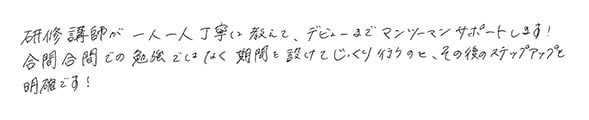 研修講師が一人一人丁寧に教えて、デビューまでマンツーマンサポートします!
合間合間での勉強ではなく期間を設けてじっくり行うのと、その後のステップアップも
明確です!